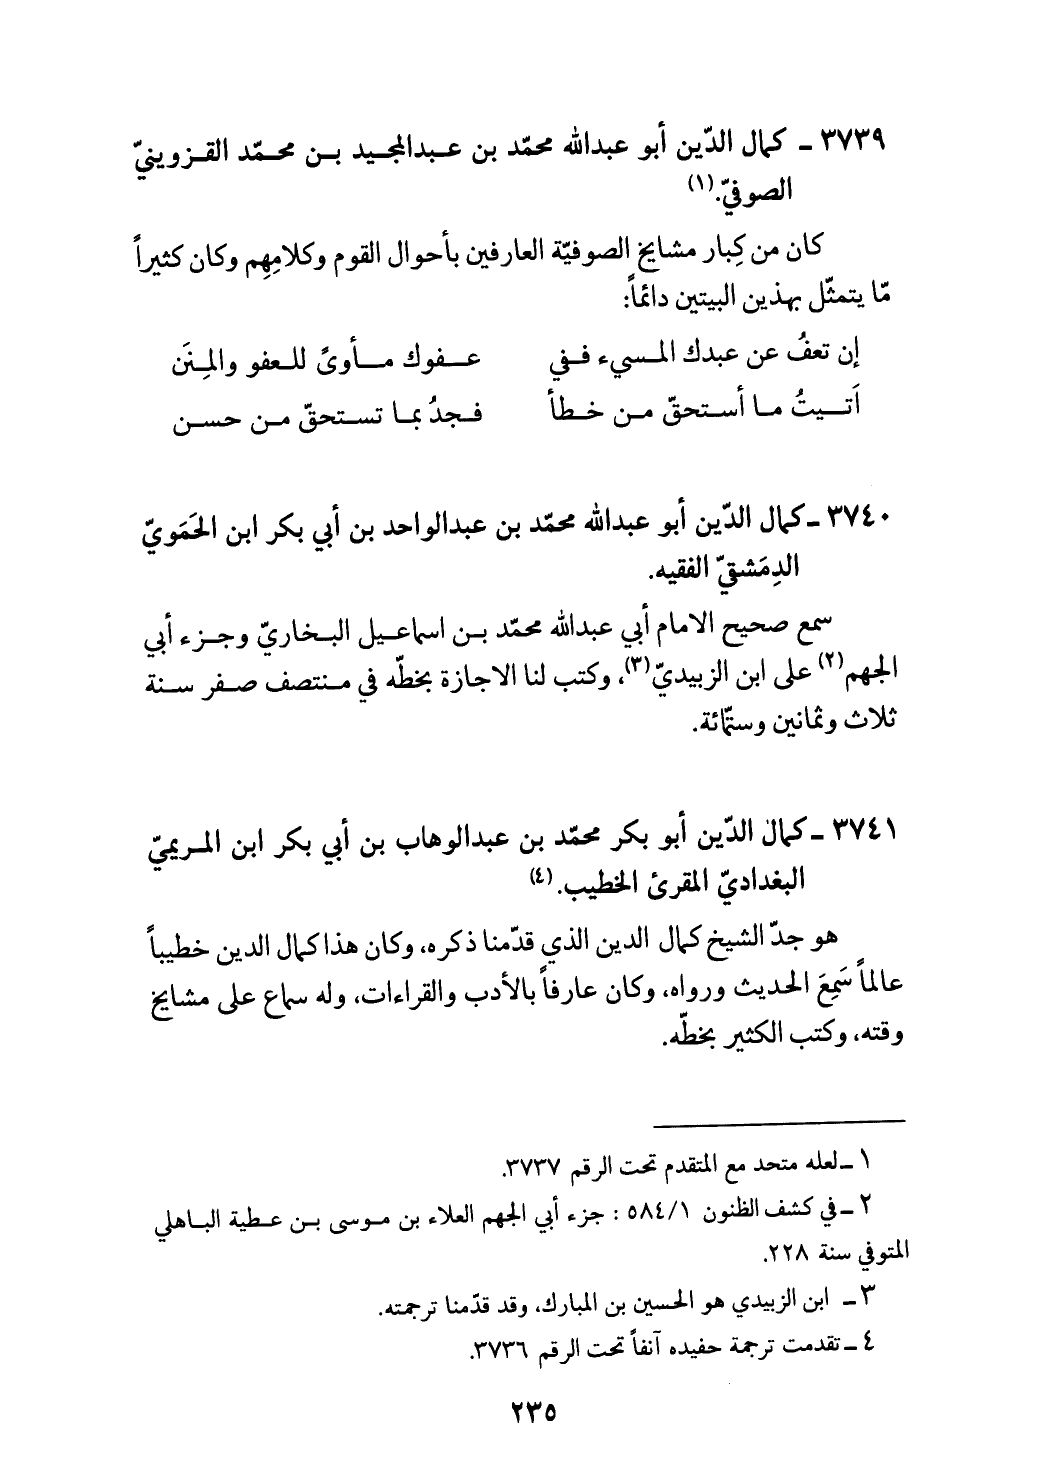 ٣٧٣٩ ـ كمال الدّين أبو عبدالله محمّد بن عبدالمجيد بن محمّد القزوينيّ
الصوفيّ.(١)
كان من كِبار مشايخ الصوفيّة العارفين بأحوال القوم وكلامِهِم وكان كثيراً
مّا يتمثّل بهذين البيتين دائماً:
إن تعفُ عن عبدك المسيء ففي عفوك مأوىً للعفو والمِنَن
اَتيتُ ما أستحقّ من خطأ فجدُ بما تستحقّ من حسن
٣٧٤٠ ـ كمال الدّين أبو عبدالله محمّد بن عبدالواحد بن أبي بكر ابن الحَمَويّ
الدِمَشقيّ الفقيه.
سمع صحيح الامام أبي عبدالله محمّد بن اسماعيل البخاريّ وجزء أبي
الجهم(٢) على ابن الزبيديّ(٣)، وكتب لنا الاجازة بخطّه في منتصف صفر سنة
ثلاث وثمانين وستّمائة.
٣٧٤١ ـ كمال الدّين أبو بكر محمّد بن عبدالوهاب بن أبي بكر ابن المريميّ
البغداديّ المقرئ الخطيب.(٤)
هو جدّ الشيخ كمال الدين الذي قدّمنا ذكره، وكان هذا كمال الدين خطيباً
عالماً سَمِعَ الحديث ورواه، وكان عارفاً بالأدب والقراءات، وله سماع على مشايخ
وقته، وكتب الكثير بخطّه.
١ ـ لعله متحد مع المتقدم تحت الرقم ٣٧٣٧.
٢ ـ في كشف الظنون ٥٨٤/١ : جزء أبي الجهم العلاء بن موسى بن عطية الباهلي
المتوفي سنة ٢٢٨.
٣ ـ ابن الزبيدي هو الحسين بن المبارك، وقد قدّمنا ترجمته.
٤ ـ تقدمت ترجمة حفيده آنفاً تحت الرقم ٣٧٣٦.
٢٣٥